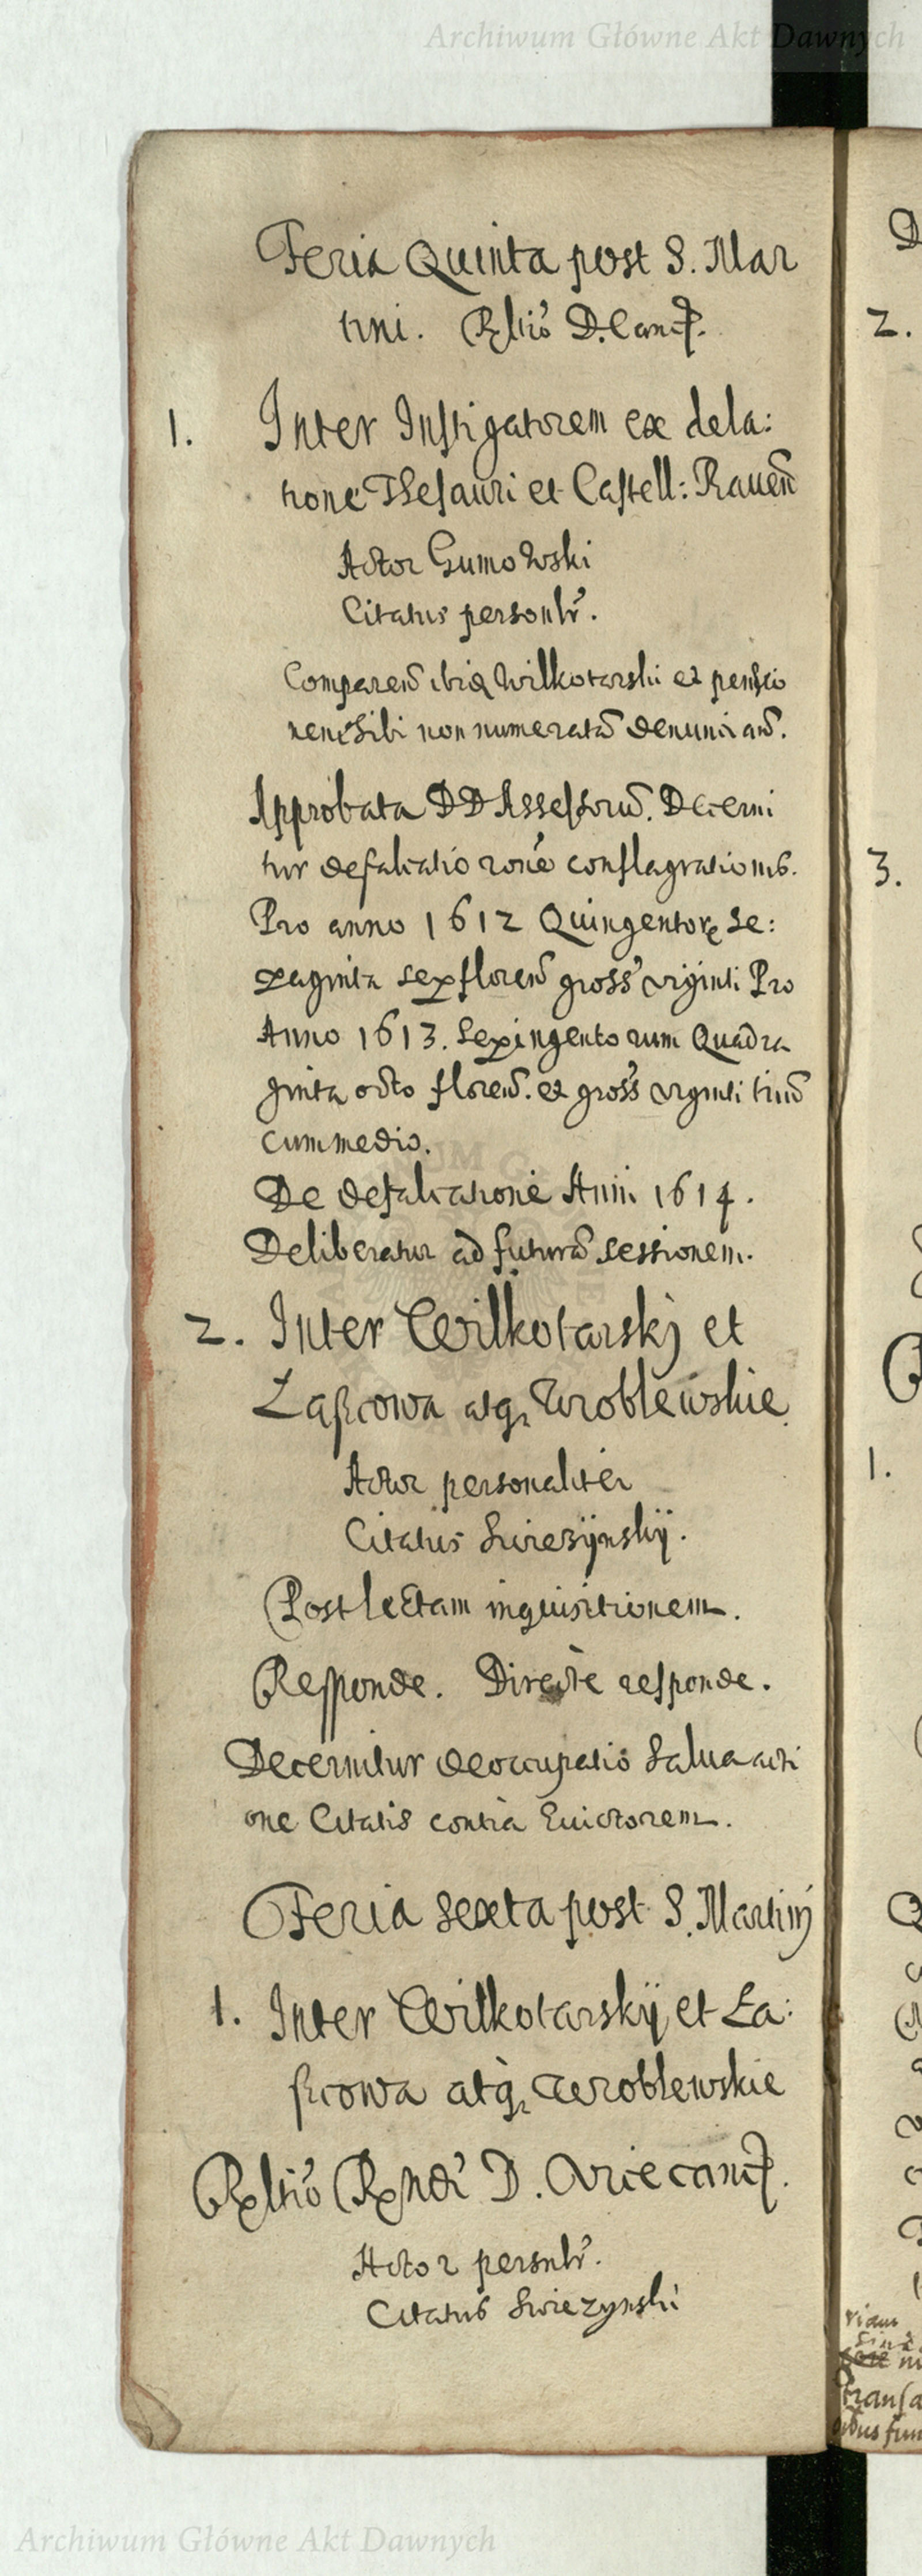 Archiwum Główne Akt Dawnych
Feria Quinta post S. Mar
tini. D. Canc.
1. Inter Instigatorem ex dela:
tione Thesauri et Castell: Rauen
Actor Gumowski
Citatus personlr.
Comparen ibiq Wilkotarski et pensio
nem sibi non numerata denuncian.
Approbata DD Assessoru. Decerni
tur defalcatio rone conflagrationis.
Pro anno 1612 Quingentor se:
xaginta sex floren gross viginti Pro
Anno 1613. Sexingentorum Quadra
ginta octo floren. et gross viginti trium
cum medio.
De defalcatione Anni 1614.
Deliberatur ad futura sessionem.
2. Inter Wilkotarskj et
Łascowa atq Wroblewskie
Actor personaliter
Citatus Swiezÿnskÿ.
Post lectam inquisitionem.
Responde. Directe responde.
Decernitur deoccupatio salua acti
one Citatis contra Euictorem.
Feria sexta post S. Martinj
1. Inter Wilkotarskÿ et Ła:
scowa atq Wroblewskie
D. Vicecanc.
Actor persnlr.
Citatus Swiezynski
2.
3.
1.
Archiwum Główne Akt Dawnych